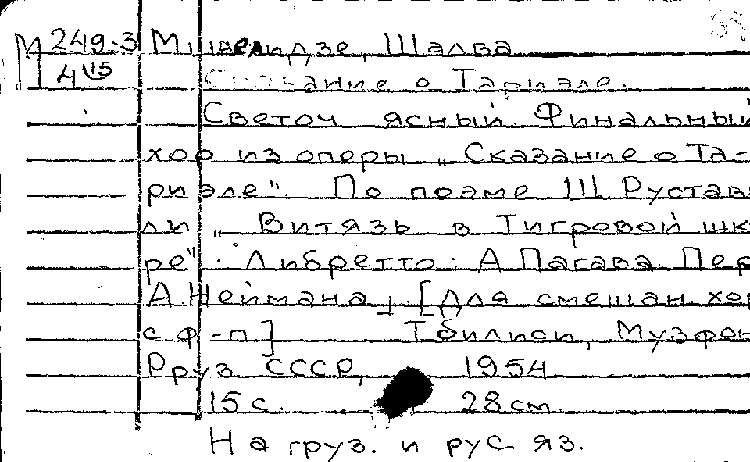 М 249-3 Мшвелидзе, Шалва
4 15 Сказание о Тариэле.
Светоч ясный. Финальный
хор из оперы „Сказание о Та-
риэле". По поэме Ш Рустав
ли „Витязь в Тигровой шк
ре". Либретто: А Пагава Пер
А Неймана, [Для смешан. хо
с ф-п] Тбилиси, Музфон
Груз СССР, 1954
15 с. 28 см
На груз. и рус яз.